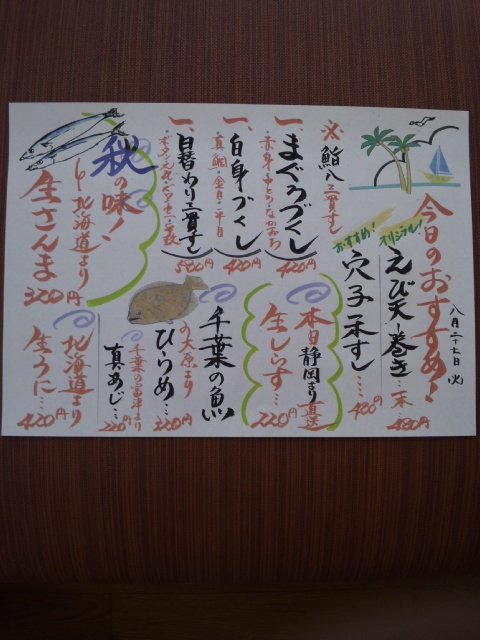 今日のおすすめ!
八月二十七日(火)
オリジナル!
えび天巻き…一本…480円
おすすめ!
穴子一本すし…480円
※鮨八三貫すし
一、まぐろづくし
・赤身・中とろ・なかおち
420円
一、白身づくし
・真鯛・金目・平目
420円
一、日替わり三貫すし
580円
秋の味!
北海道より
生さんま
320円
本日静岡より直送
生しらす…220円
千葉の魚
大原より
ひらめ…220円
千葉の富津より
真あじ…220円
北海道より
生うに…420円